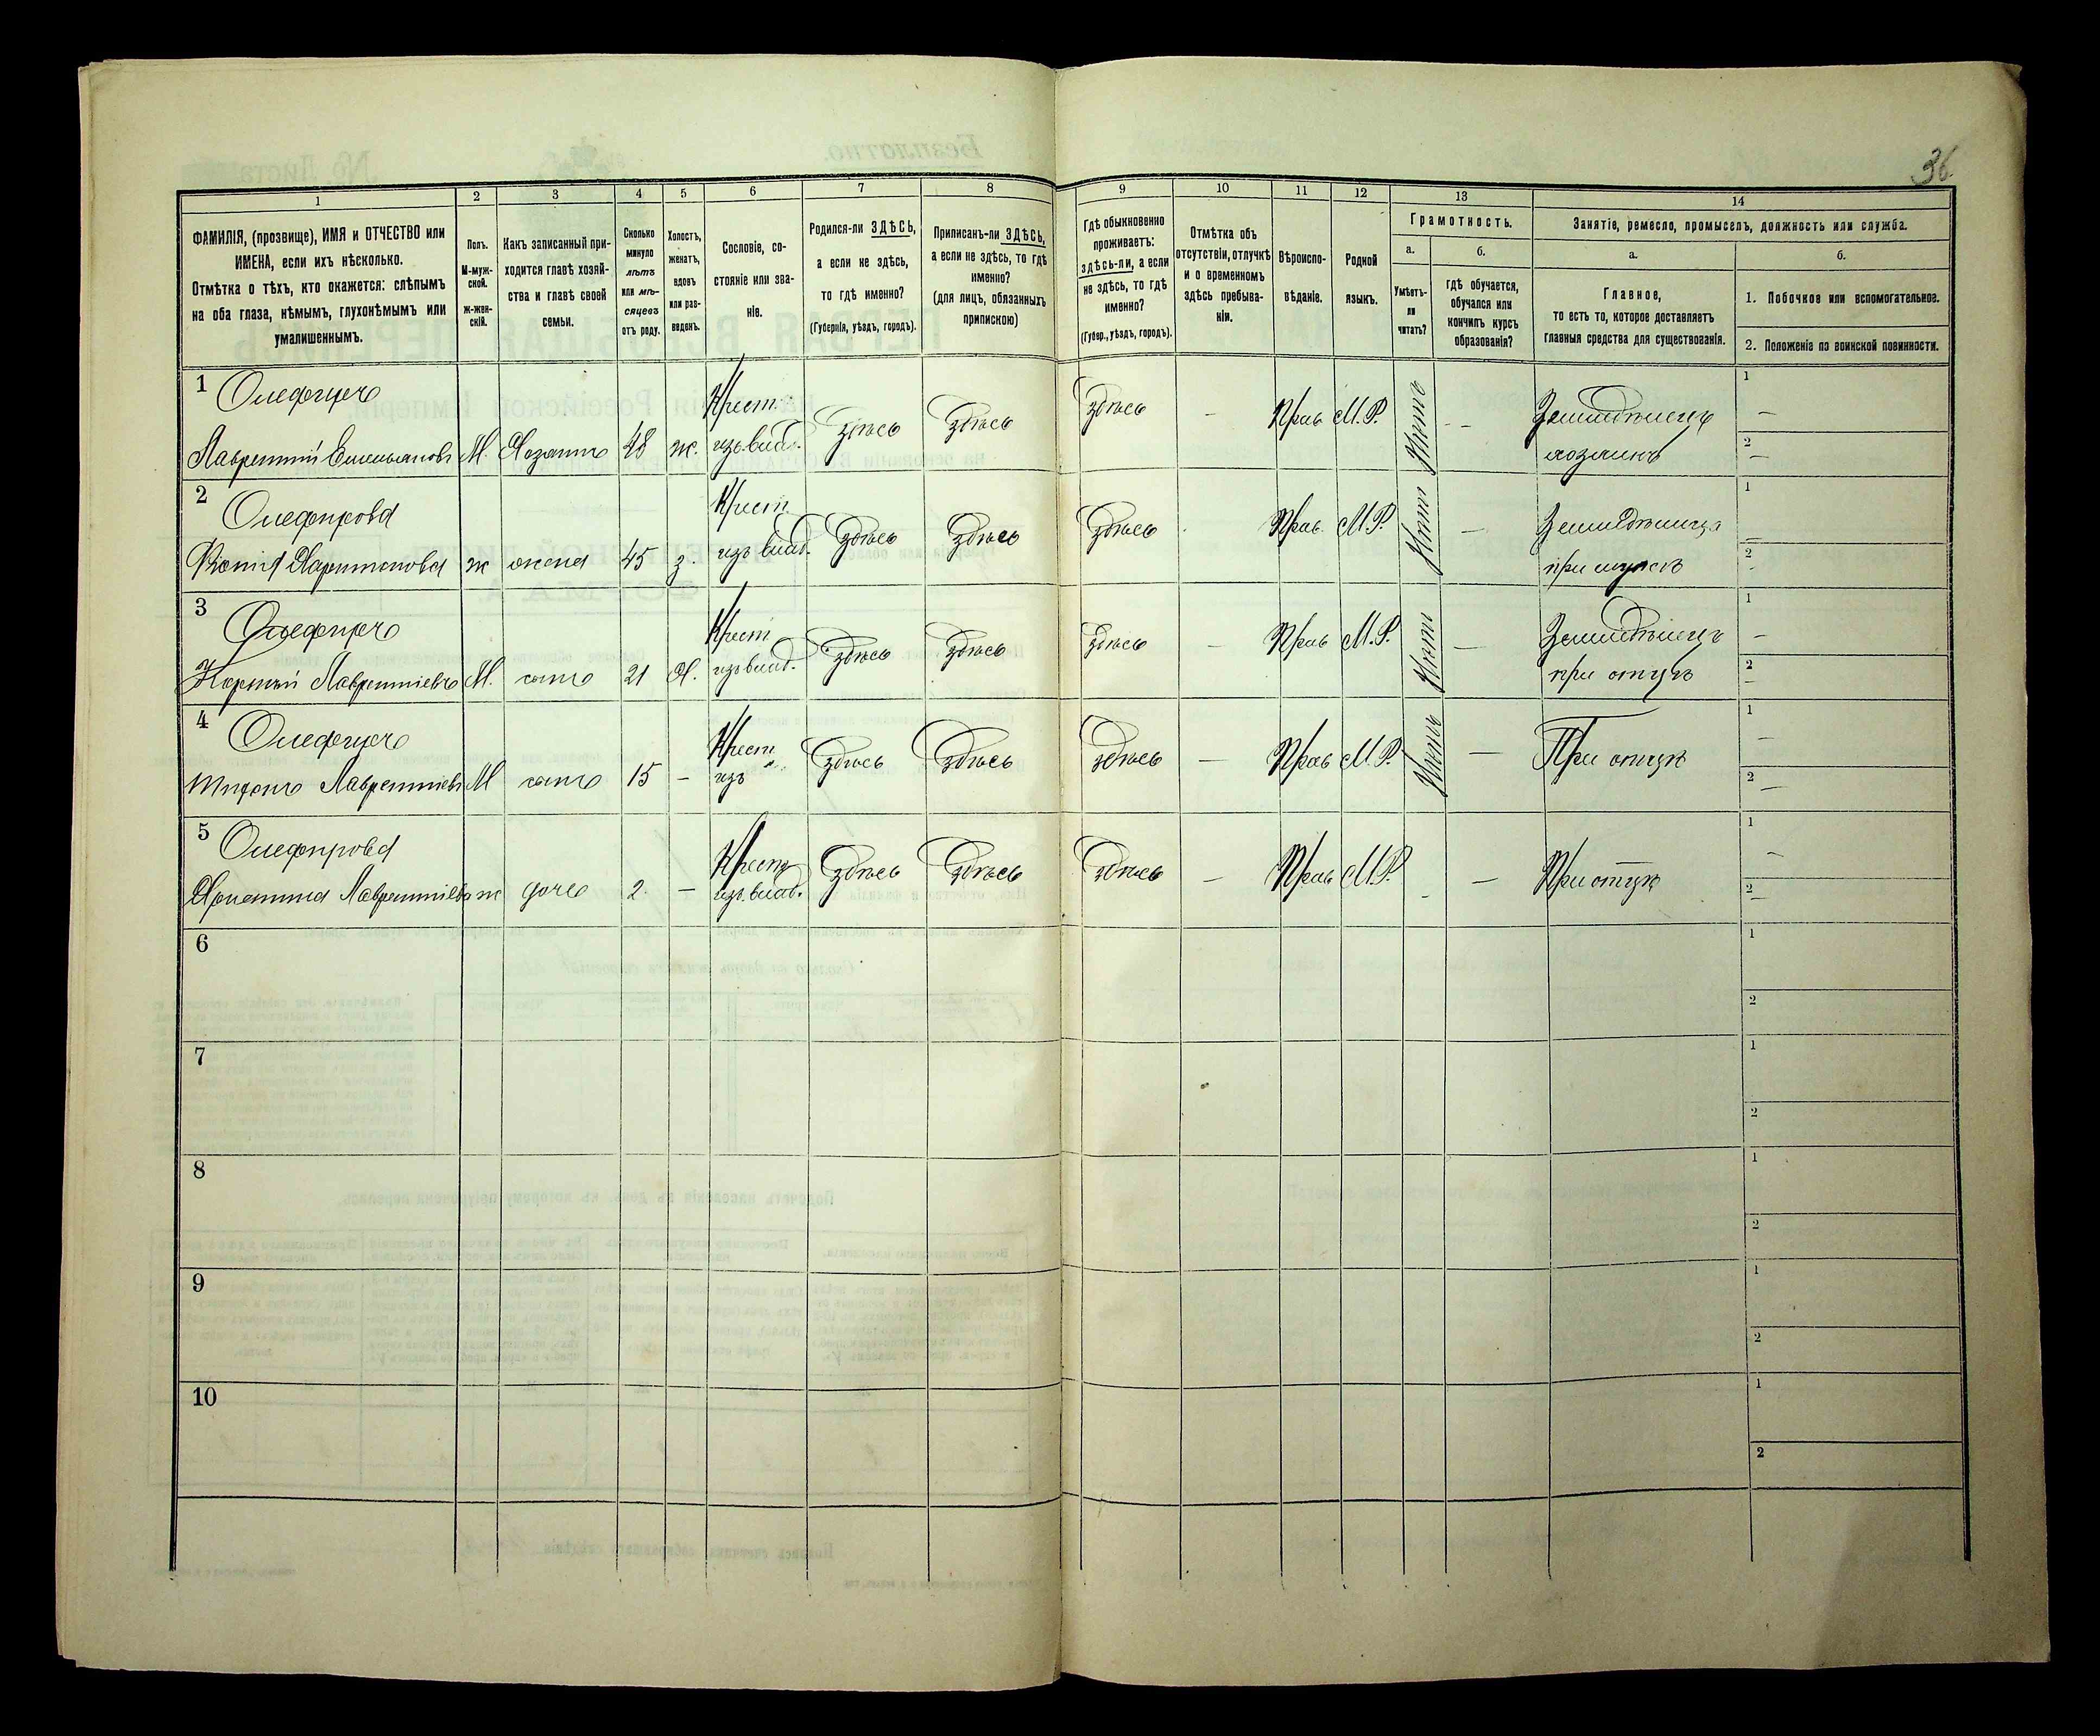 36
1
2
3
4
5
6
7
8
9
10
11
12
13
14
ФАМИЛІЯ, (прозвище), ИМЯ и ОТЧЕСТВО или
ИМЕНА, если ихъ нѣсколько.
Отмѣтка о тѣхъ, кто окажется: слѣпымъ
на оба глаза, нѣмымъ, глухонѣмымъ или
умалишеннымъ.
Полъ.
М-муж-
ской.
ж-жен-
скій.
Какъ записанный при-
ходится главѣ хозяй-
ства и главѣ своей
семьи.
Сколько
минуло
лѣтъ
или мѣ-
сяцевъ
отъ роду.
Холостъ,
женатъ,
вдовъ
или раз-
веденъ.
Сословіе, со-
стояніе или зва-
ніе.
Родился-ли ЗДѢСЬ,
а если не здѣсь,
то гдѣ именно?
(Губернія, уѣздъ, городъ).
Приписанъ-ли ЗДѢСЬ,
а если не здѣсь, то гдѣ
именно?
(для лицъ, обязанныхъ
припискою)
Гдѣ обыкновенно
проживаетъ:
здѣсь-ли, а если
не здѣсь, то гдѣ
именно?
(Губер., уѣздъ, городъ).
Отмѣтка объ
отсутствіи, отлучкѣ
и о временномъ
здѣсь пребыва-
ніи.
Вѣроиспо-
вѣданіе.
Родной
языкъ.
Грамотность.
а.
Умѣетъ-
ли
читать?
б.
гдѣ обучается,
обучался или
кончилъ курсъ
образованія?
Занятіе, ремесло, промыселъ, должность или служба.
а.
Главное,
то есть то, которое доставляетъ
главныя средства для существованія.
б.
1. Побочное или вспомогательное.
2. Положеніе по воинской повинности.
1 Олефиръ Крест. здѣсь здѣсь здѣсь — Прав М.Р. Нѣтъ — Земледѣлецъ 1 —
Лаврентій Емельяновъ М. Хозяинъ 48 ж. изъ влад. хозяинъ 2 —
2 Олефирова Крест. здѣсь здѣсь здѣсь Прав. М.Р. Нѣтъ — Земледѣлица 1 —
Харитонова ж жена 45 з. изъ влад. при мужѣ 2 -
3 Олефиръ Крест здѣсь здѣсь здѣсь — Прав М.Р. Нѣтъ — Земледѣлецъ 1 —
Лаврентіевъ М. сынъ 21 Х. изъ влад. при отцѣ 2 —
4 Олефиръ Крест здѣсь здѣсь здѣсь — Прав М.Р. Нѣтъ — При отцѣ 1 —
Трифонъ Лаврентіевъ М сынъ 15 — изъ 2 —
5 Олефирова Крест здѣсь здѣсь здѣсь — Прав М.Р. - — При отцѣ 1 —
Христина Лаврентіева ж дочь 2. — изъ влад. 2 —
6 1
2
7 1
2
8 1
2
9 1
2
10 1
2